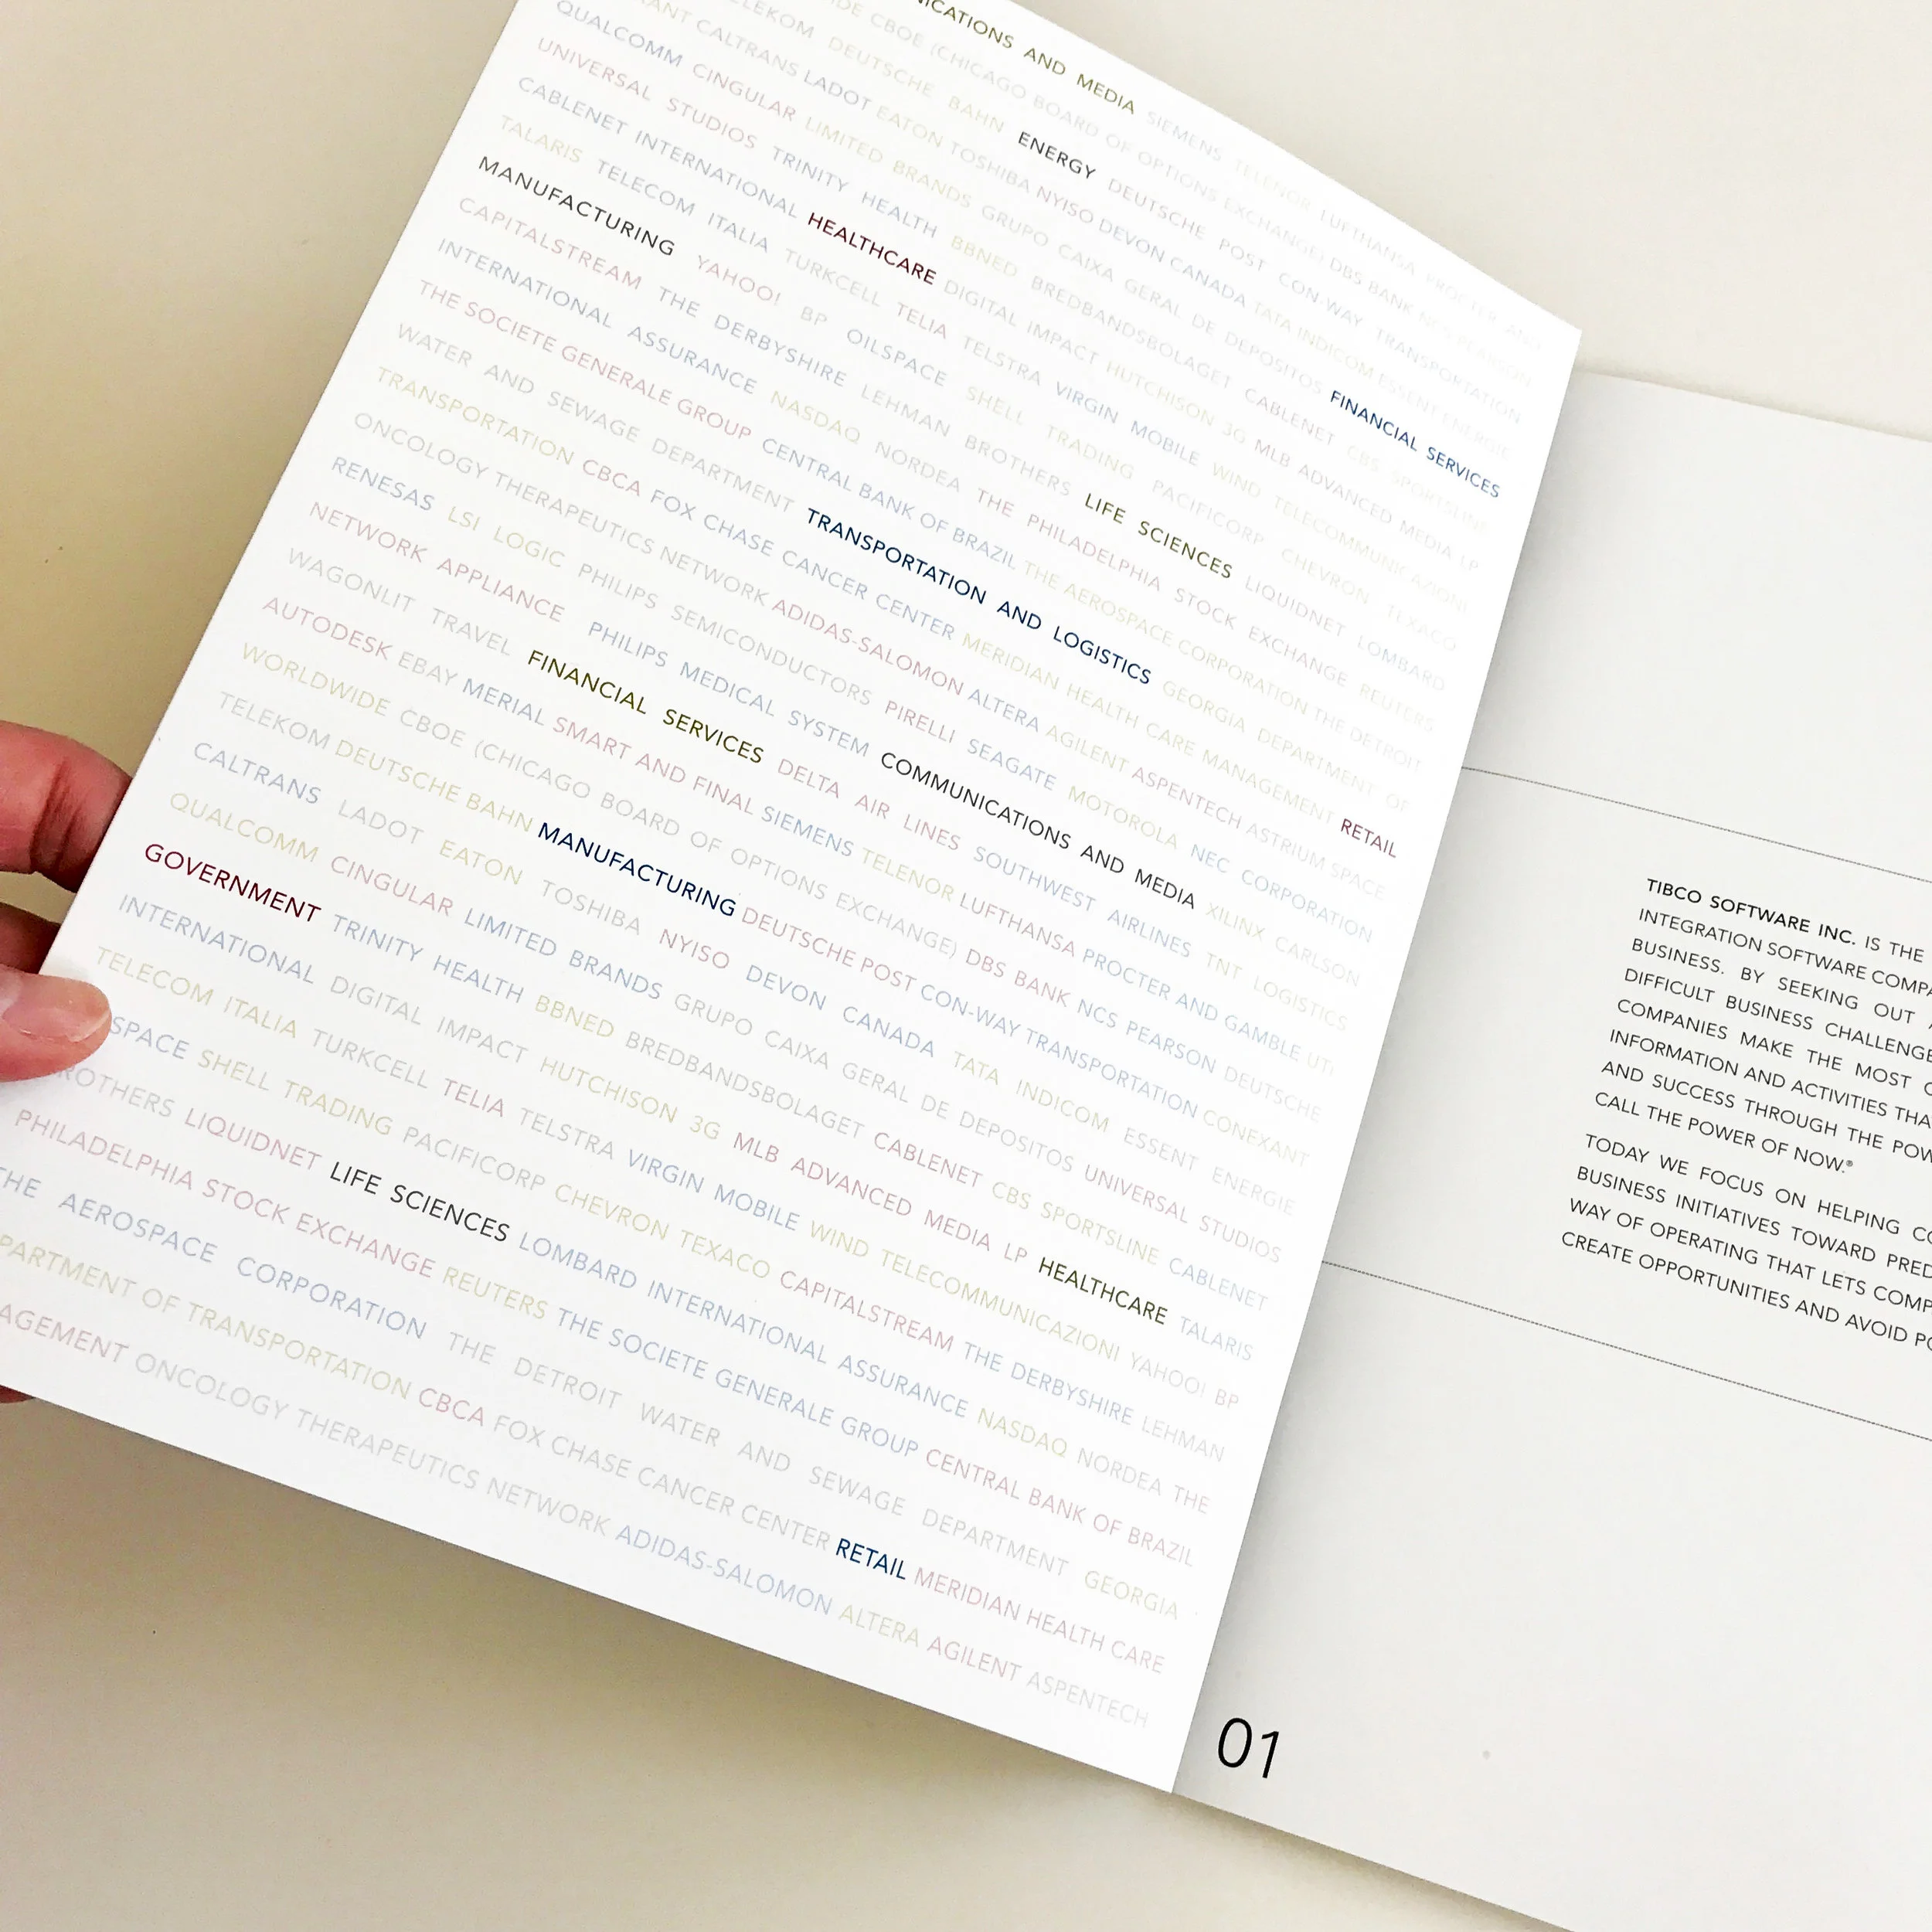 NICATIONS AND MEDIA SIEMENS TELENOR LUFTHANSA PROCTER AND
CBOE (CHICAGO BOARD OF OPTIONS EXCHANGE) DBS BANK NCS PEARSON
TELEKOM DEUTSCHE BAHN ENERGY DEUTSCHE POST CON-WAY TRANSPORTATION
CALTRANS LADOT EATON TOSHIBA NYISO DEVON CANADA TATA INDICOM ESSENT ENERGIE
QUALCOMM CINGULAR LIMITED BRANDS GRUPO CAIXA GERAL DE DEPOSITOS FINANCIAL SERVICES
UNIVERSAL STUDIOS TRINITY HEALTH BBNED BREDBANDSBOLAGET CABLENET CBS SPORTSLINE
CABLENET INTERNATIONAL HEALTHCARE DIGITAL IMPACT HUTCHISON 3G MLB ADVANCED MEDIA LP
TALARIS TELECOM ITALIA TURKCELL TELIA TELSTRA VIRGIN MOBILE WIND TELECOMMUNICAZIONI
MANUFACTURING YAHOO! BP OILSPACE SHELL TRADING PACIFICORP CHEVRON TEXACO
CAPITALSTREAM THE DERBYSHIRE LEHMAN BROTHERS LIFE SCIENCES LIQUIDNET LOMBARD
INTERNATIONAL ASSURANCE NASDAQ NORDEA THE PHILADELPHIA STOCK EXCHANGE REUTERS
THE SOCIETE GENERALE GROUP CENTRAL BANK OF BRAZIL THE AEROSPACE CORPORATION THE DETROIT
WATER AND SEWAGE DEPARTMENT TRANSPORTATION AND LOGISTICS GEORGIA DEPARTMENT OF
TRANSPORTATION CBCA FOX CHASE CANCER CENTER MERIDIAN HEALTH CARE MANAGEMENT RETAIL
ONCOLOGY THERAPEUTICS NETWORK ADIDAS-SALOMON ALTERA AGILENT ASPENTECH ASTRIUM SPACE
RENESAS LSI LOGIC PHILIPS SEMICONDUCTORS PIRELLI SEAGATE MOTOROLA NEC CORPORATION
NETWORK APPLIANCE PHILIPS MEDICAL SYSTEM COMMUNICATIONS AND MEDIA XILINX CARLSON
WAGONLIT TRAVEL FINANCIAL SERVICES DELTA AIR LINES SOUTHWEST AIRLINES TNT LOGISTICS
AUTODESK EBAY MERIAL SMART AND FINAL SIEMENS TELENOR LUFTHANSA PROCTER AND GAMBLE UTI
WORLDWIDE CBOE (CHICAGO BOARD OF OPTIONS EXCHANGE) DBS BANK NCS PEARSON DEUTSCHE
TELEKOM DEUTSCHE BAHN MANUFACTURING DEUTSCHE POST CON-WAY TRANSPORTATION CONEXANT
CALTRANS LADOT EATON TOSHIBA NYISO DEVON CANADA TATA INDICOM ESSENT ENERGIE
QUALCOMM CINGULAR LIMITED BRANDS GRUPO CAIXA GERAL DE DEPOSITOS UNIVERSAL STUDIOS
GOVERNMENT TRINITY HEALTH BBNED BREDBANDSBOLAGET CABLENET CBS SPORTSLINE CABLENET
INTERNATIONAL DIGITAL IMPACT HUTCHISON 3G MLB ADVANCED MEDIA LP HEALTHCARE TALARIS
TELECOM ITALIA TURKCELL TELIA TELSTRA VIRGIN MOBILE WIND TELECOMMUNICAZIONI YAHOO! BP
SPACE SHELL TRADING PACIFICORP CHEVRON TEXACO CAPITALSTREAM THE DERBYSHIRE LEHMAN
ROTHERS LIQUIDNET LIFE SCIENCES LOMBARD INTERNATIONAL ASSURANCE NASDAQ NORDEA THE
PHILADELPHIA STOCK EXCHANGE REUTERS THE SOCIETE GENERALE GROUP CENTRAL BANK OF BRAZIL
THE AEROSPACE CORPORATION THE DETROIT WATER AND SEWAGE DEPARTMENT GEORGIA
PARTMENT OF TRANSPORTATION CBCA FOX CHASE CANCER CENTER RETAIL MERIDIAN HEALTH CARE
AGEMENT ONCOLOGY THERAPEUTICS NETWORK ADIDAS-SALOMON ALTERA AGILENT ASPENTECH
TIBCO SOFTWARE INC. IS THE
INTEGRATION SOFTWARE COMPA
BUSINESS. BY SEEKING OUT
DIFFICULT BUSINESS CHALLENGE
COMPANIES MAKE THE MOST
INFORMATION AND ACTIVITIES THA
AND SUCCESS THROUGH THE POW
CALL THE POWER OF NOW.®
TODAY WE FOCUS ON HELPING CO
BUSINESS INITIATIVES TOWARD PRED
WAY OF OPERATING THAT LETS COMP
CREATE OPPORTUNITIES AND AVOID PO
01